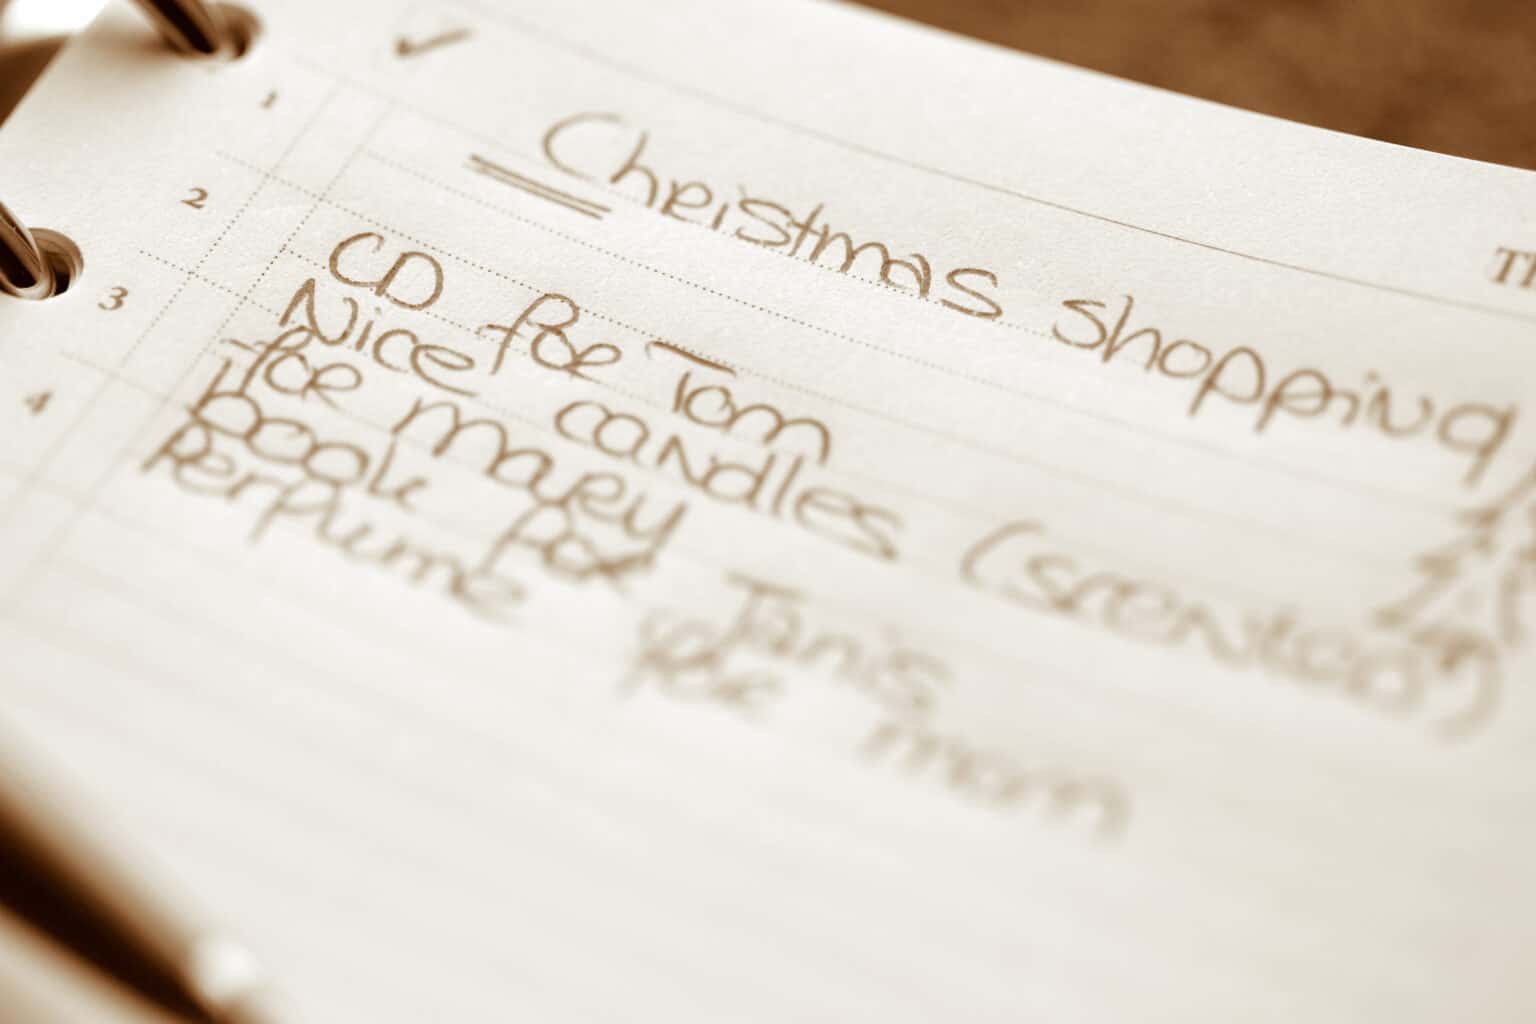 ✓
Th
1
Christmas shopping
2
CD for Tom
3
Nice candles (scented)
4
for mary
book for Janis
Perfume for mom